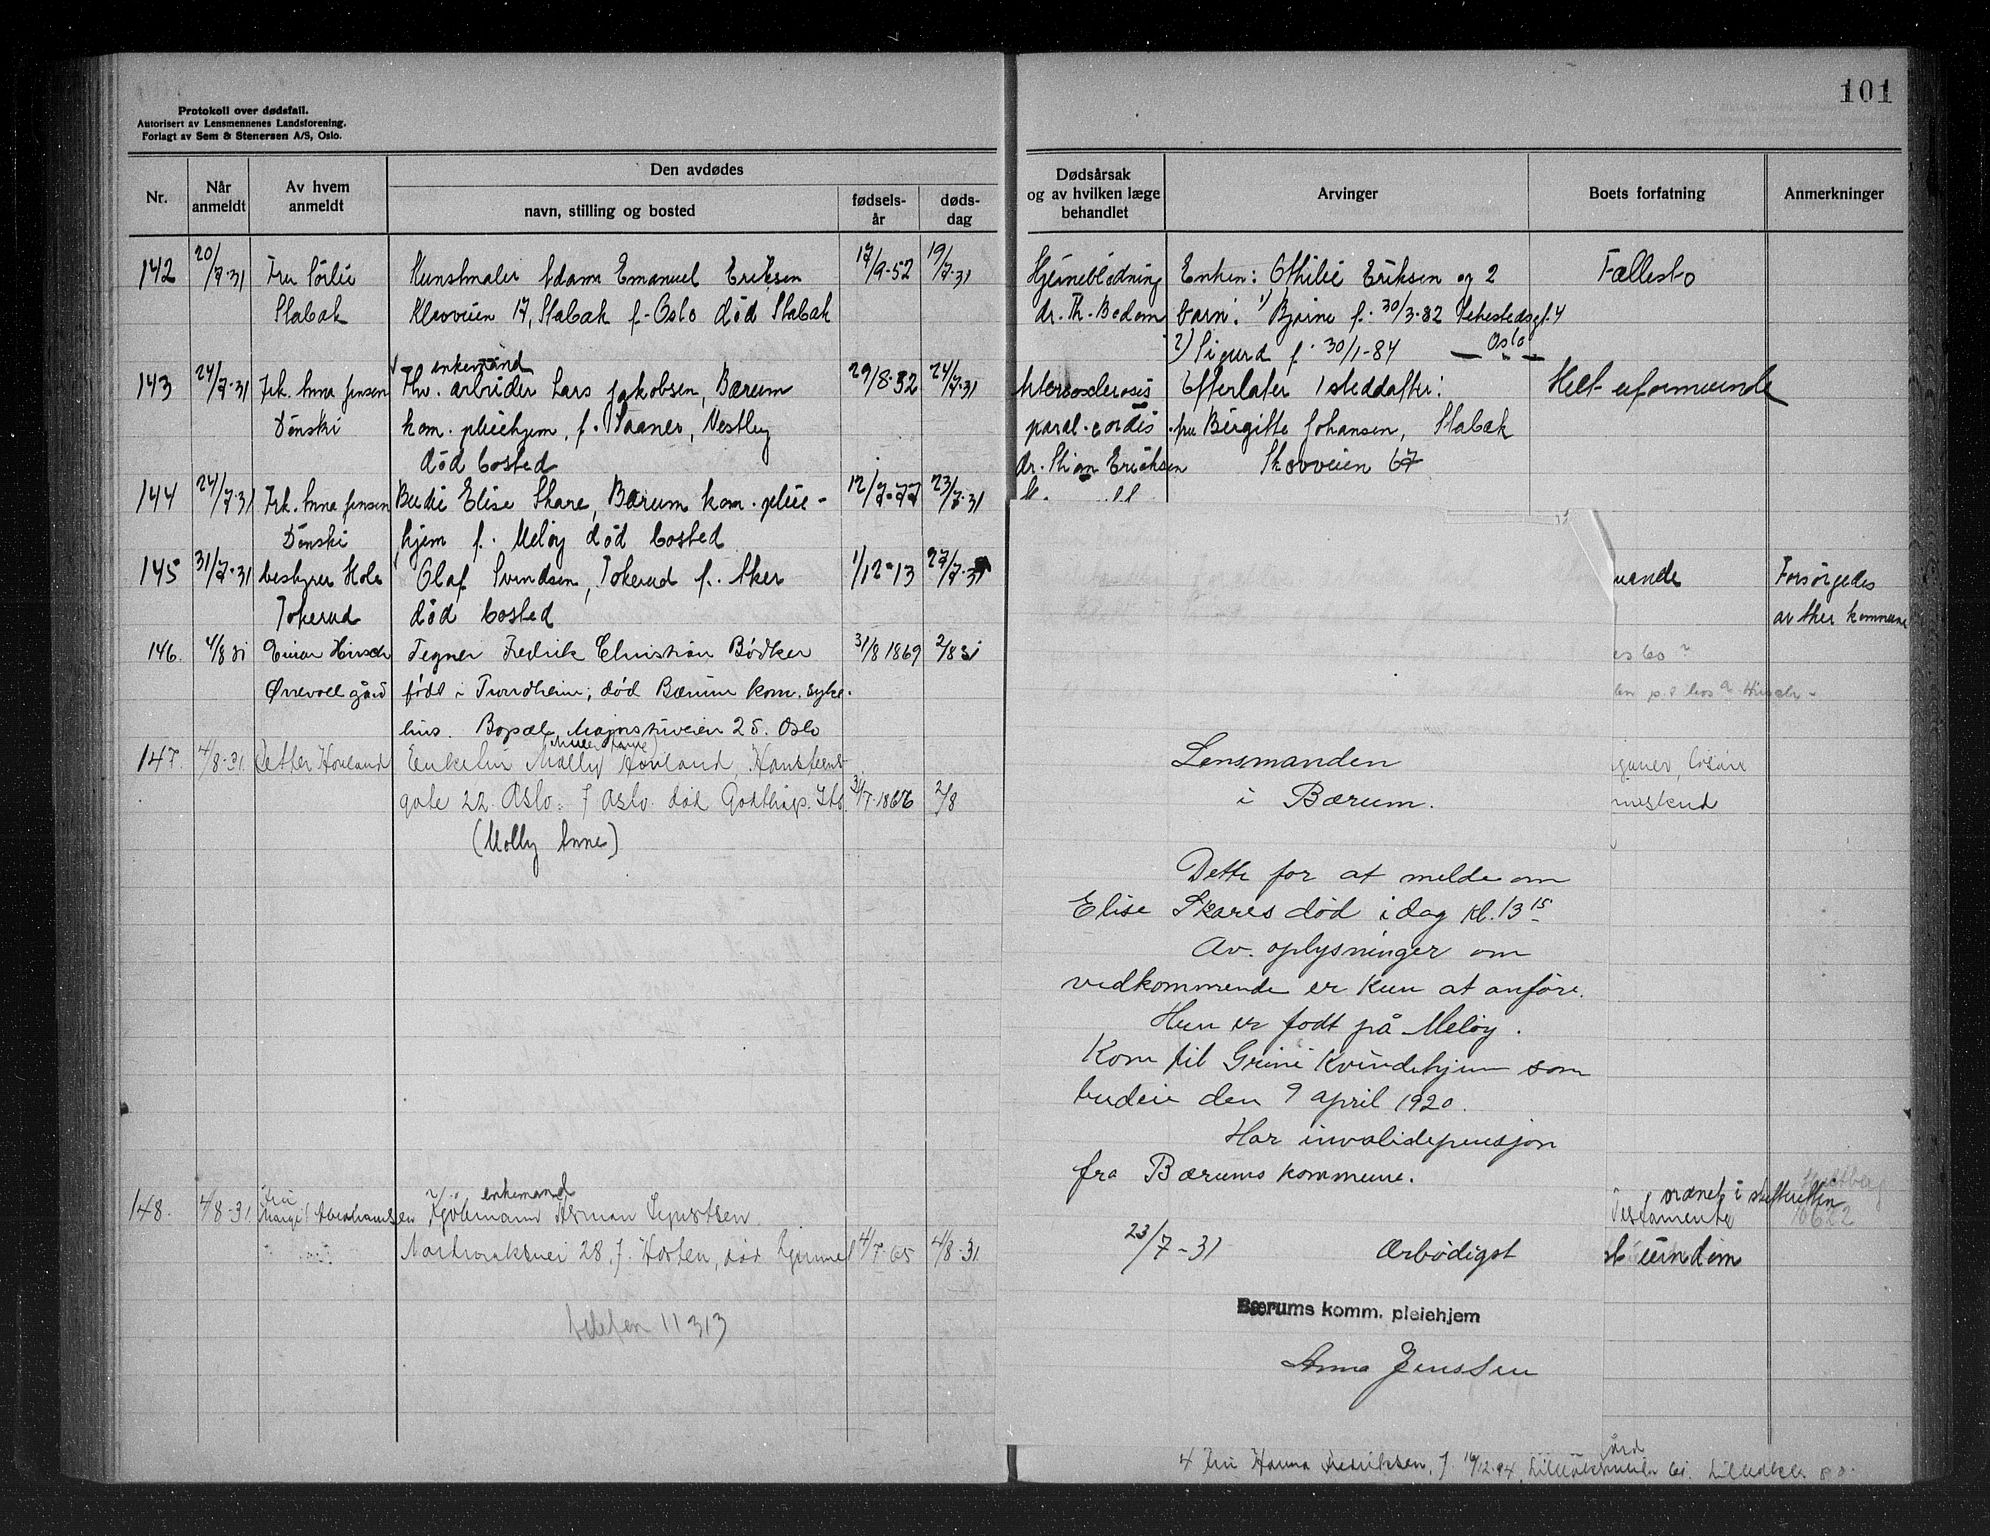 Protokoll over dødsfall.
Autorisert av Lensmennenes Landsforening.
Forlagt av Sem & Stenersen A/S, Oslo.
Nr.
Når anmeldt
Av hvem anmeldt
Den avdødes
navn, stilling og bosted
fødsels-år
døds-dag
142 20/7-31 Fru Sörlie Kunstmaler Adam Emanuel Eriksen 17/9-52 19/7-31
Stabæk Kleivveien 17, Stabæk f. Oslo död Stabæk
enkemand
143 24/7-31 Frk. Anna Jensen Fhv. arbeider Lars Jakobsen, Bærum 29/8-32 24/7-31
Dönski kom. pleiehjem, f. Vaaner, Vestby
död bosted
144 24/7-31 Frk. Anna Jensen Budeie Elise Skare, Bærum kom. pleie- 12/7-77 23/7-31
Dönski hjem f. Melöy död bosted
145 31/7-31 bestyrer Hole Olaf Svendsen, Tokerud f. Aker 1/12-13 27/7-31
Tokerud död bosted
146. 4/8 31 Einar Hirsch Tegner Fredrik Christian Bødker 31/8 1869 2/8 31
Øvrevoll gård født i Trondheim; død Bærum kom. syke-
hus. Bopæl Majorstuveien 25. Oslo
147. 4/8-31. Petter Hovland Enkefru Molly Hovland, Hansteens-
gate 22. Oslo. f Oslo. död Godthåp. Stb. 3/7-1866 2/8
(Molly Anne)
148. 4/8-31. Fru Margit Abrahamsen enkemand Kjöbmann Herman Syvertsen
28. f. Horten, död hjemmet 4/7-65 4/8-31.
telefon 11313
101
Dødsårsak og av hvilken læge behandlet
Arvinger
Boets forfatning
Anmerkninger
Hjerneblödning Enken: Othilie Eriksen og 2 Fællesbo
dr. Th. Bedom barn: 1) Bjarne f. 30/3-82 Sehestedsgt. 4
Oslo
2) Sigurd f. 30/1-84 — " —
Arteriosclerosis Efterlater 1 steddatter: Helt uformuende
paral. cordis fru Birgitte Johansen, Stabæk
dr. Stian Erichsen Skovveien 67
uende Forsörgedes
av Aker kommune
es bo?
Lensmanden
i Bærum.
Dette for at melde om
Elise Skares död i dag kl. 13 15
Av oplysninger om
vedkommende er kun at anföre.
Hun er født på Melöy.
Kom til Grini Kvindehjem som
budeie den 9 april 1920.
Har invalidepensjon
fra Bærums kommune.
23/7-31 Ærbödigst
Bærums komm. pleiehjem
Anna Jenssen
ordnet i skifteretten
Testamente
eiendom
4 Fru Hanna Fredriksen, f. 16/12-94,